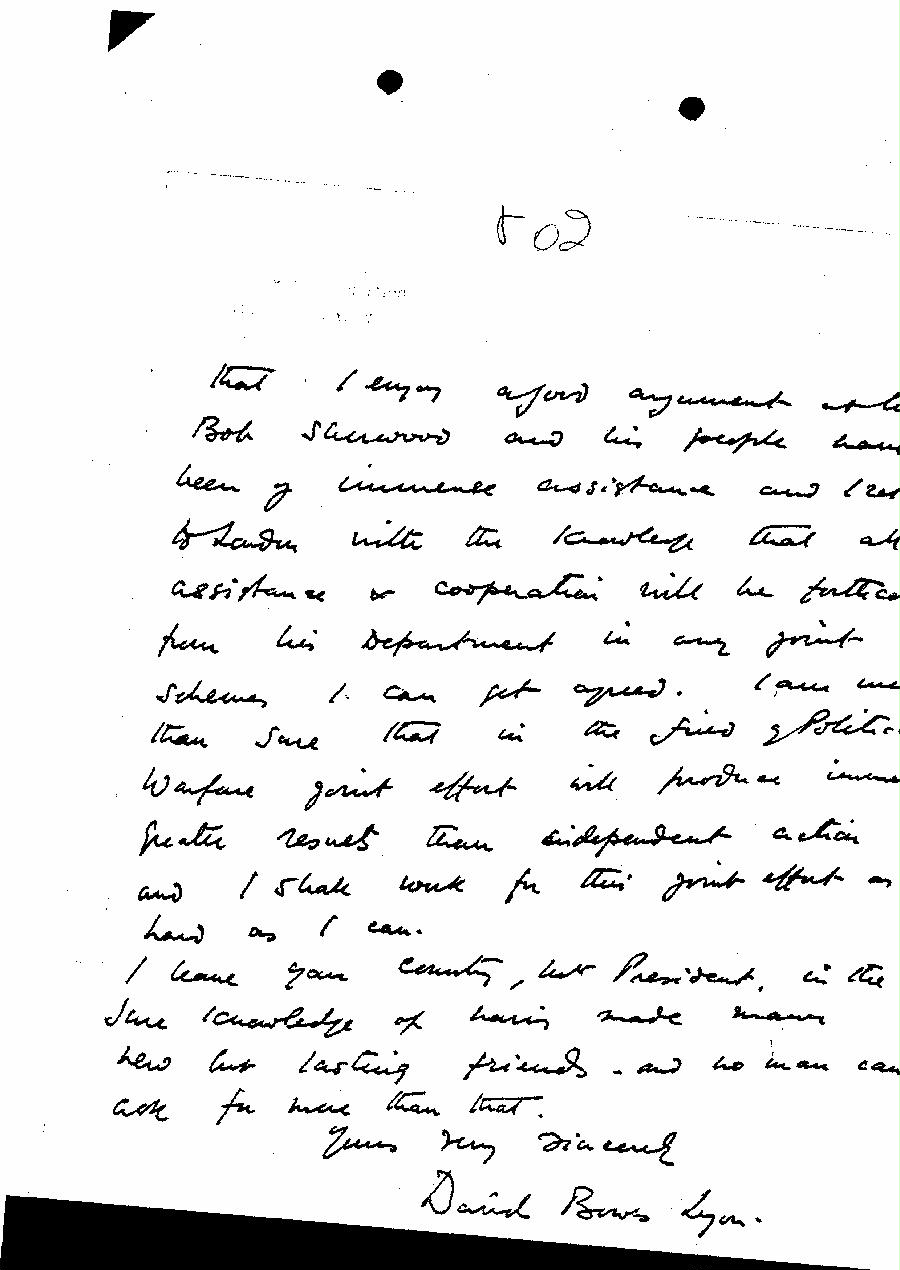 502
that I enjoy a good argument
Bob Sherwood and his people have
been of immense assistance and I
to London with the knowledge that all
assistance or cooperation will be
from his Department in any joint
schemes I can get agreed. I am
than sure that in the field of
Warfare joint effort will produce
greater results than independent action
and I shall work for this joint effort as
hard as I can.
I leave your country, Mr President, in the
sure knowledge of having made many
new but lasting friends - and no man can
ask for more than that.
Yours very sincerely
David Bowes Lyon.